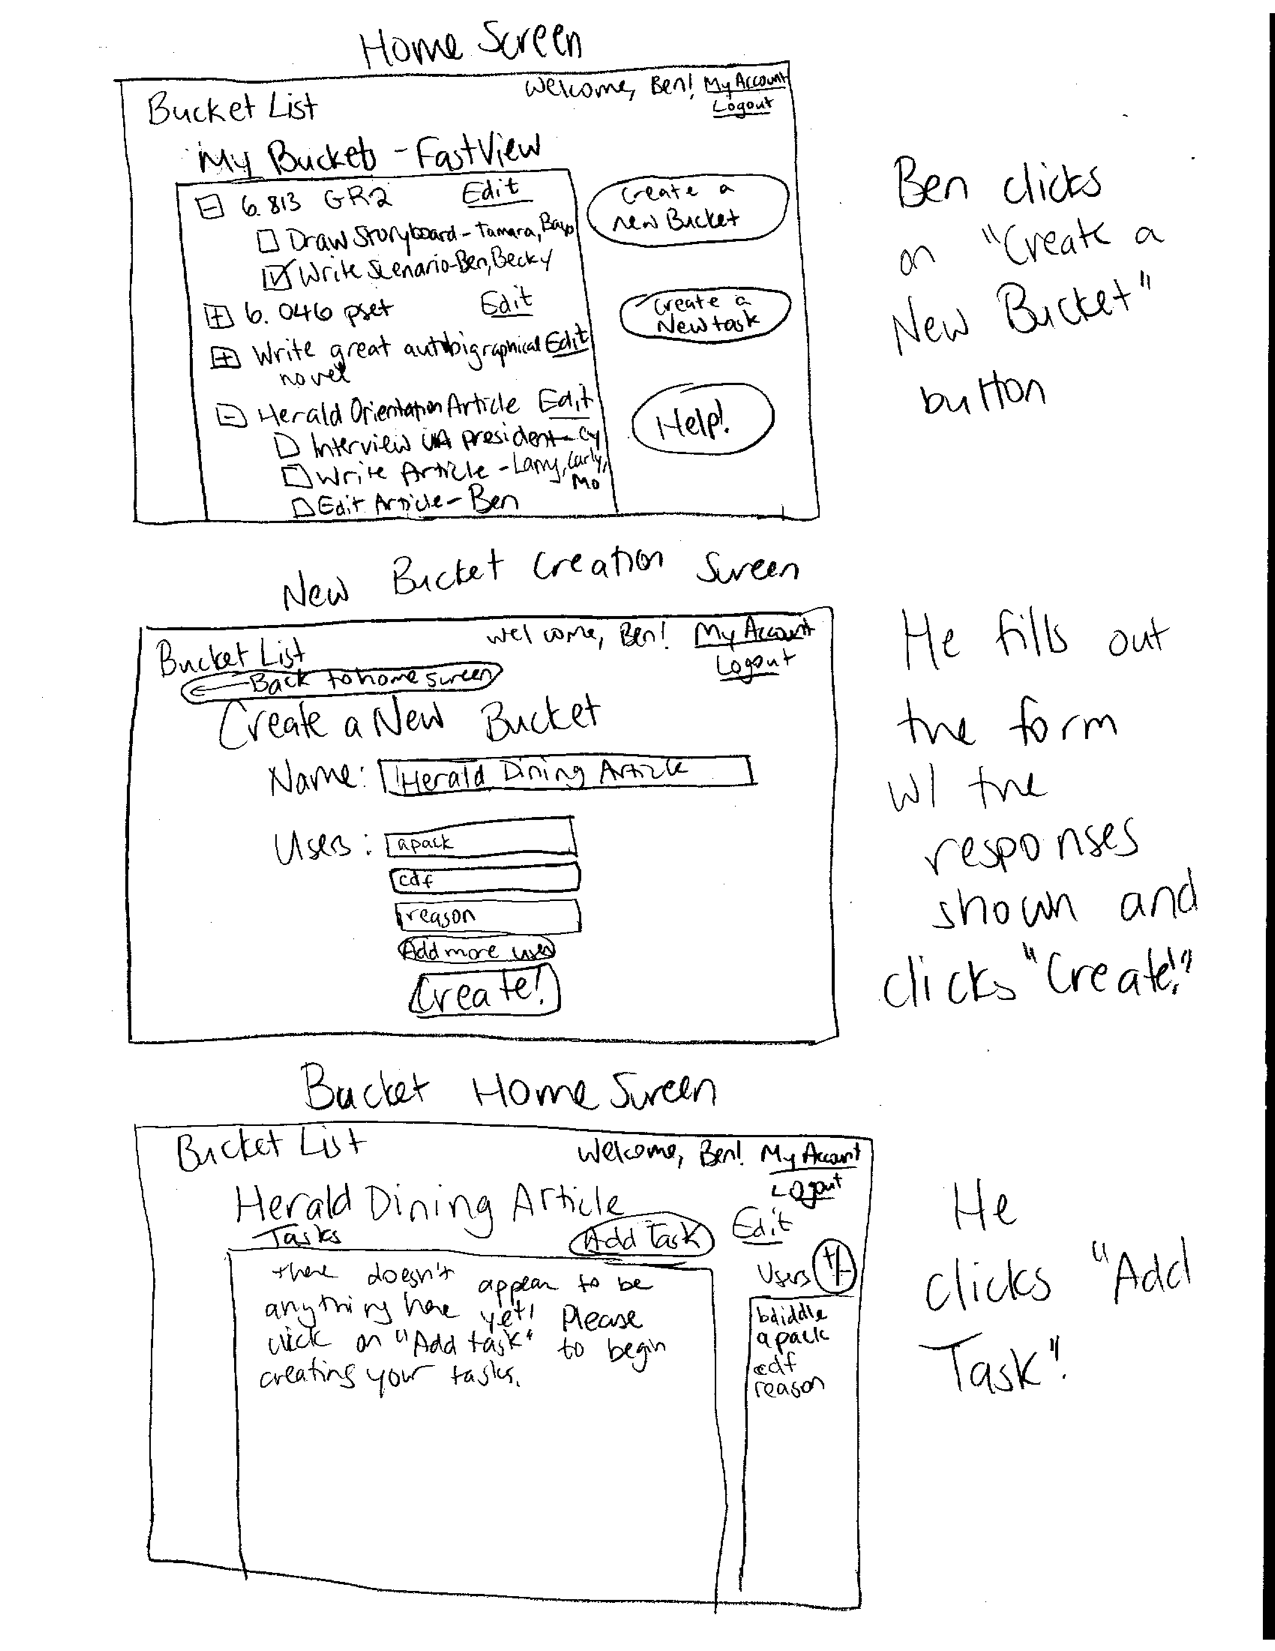 Home Screen
Welcome, Ben! My Account
Bucket List
Logout
My Buckets - FastView
6.813 GR2 Edit
Draw Storyboard - Tamara,
Write Scenario - Ben, Becky
6.046 pset Edit
Write great autobigraphical Edit
novel
Herald Orientation Article Edit
Interview UA president - Cy
Write Article - Larry, Curly,
Mo
Edit Article - Ben
Create a
new Bucket
Create a
New task
Help!
Ben clicks
on "Create a
New Bucket"
button
New Bucket Creation Screen
Welcome, Ben! My Account
Bucket List
Logout
← Back to home screen
Create a New Bucket
Name: Herald Dining Article
Users: apack
cdf
reason
Add more users
Create!
He fills out
the form
w/ the
responses
shown and
clicks "Create!"
Bucket Home Screen
Bucket List
Welcome, Ben! My Account
Logout
Herald Dining Article
Tasks Add Task Edit
there doesn't appear to be
anything here yet! Please
click on "Add task" to begin
creating your tasks.
Users +/-
bdiddle
apack
cdf
reason
He
clicks "Add
Task".